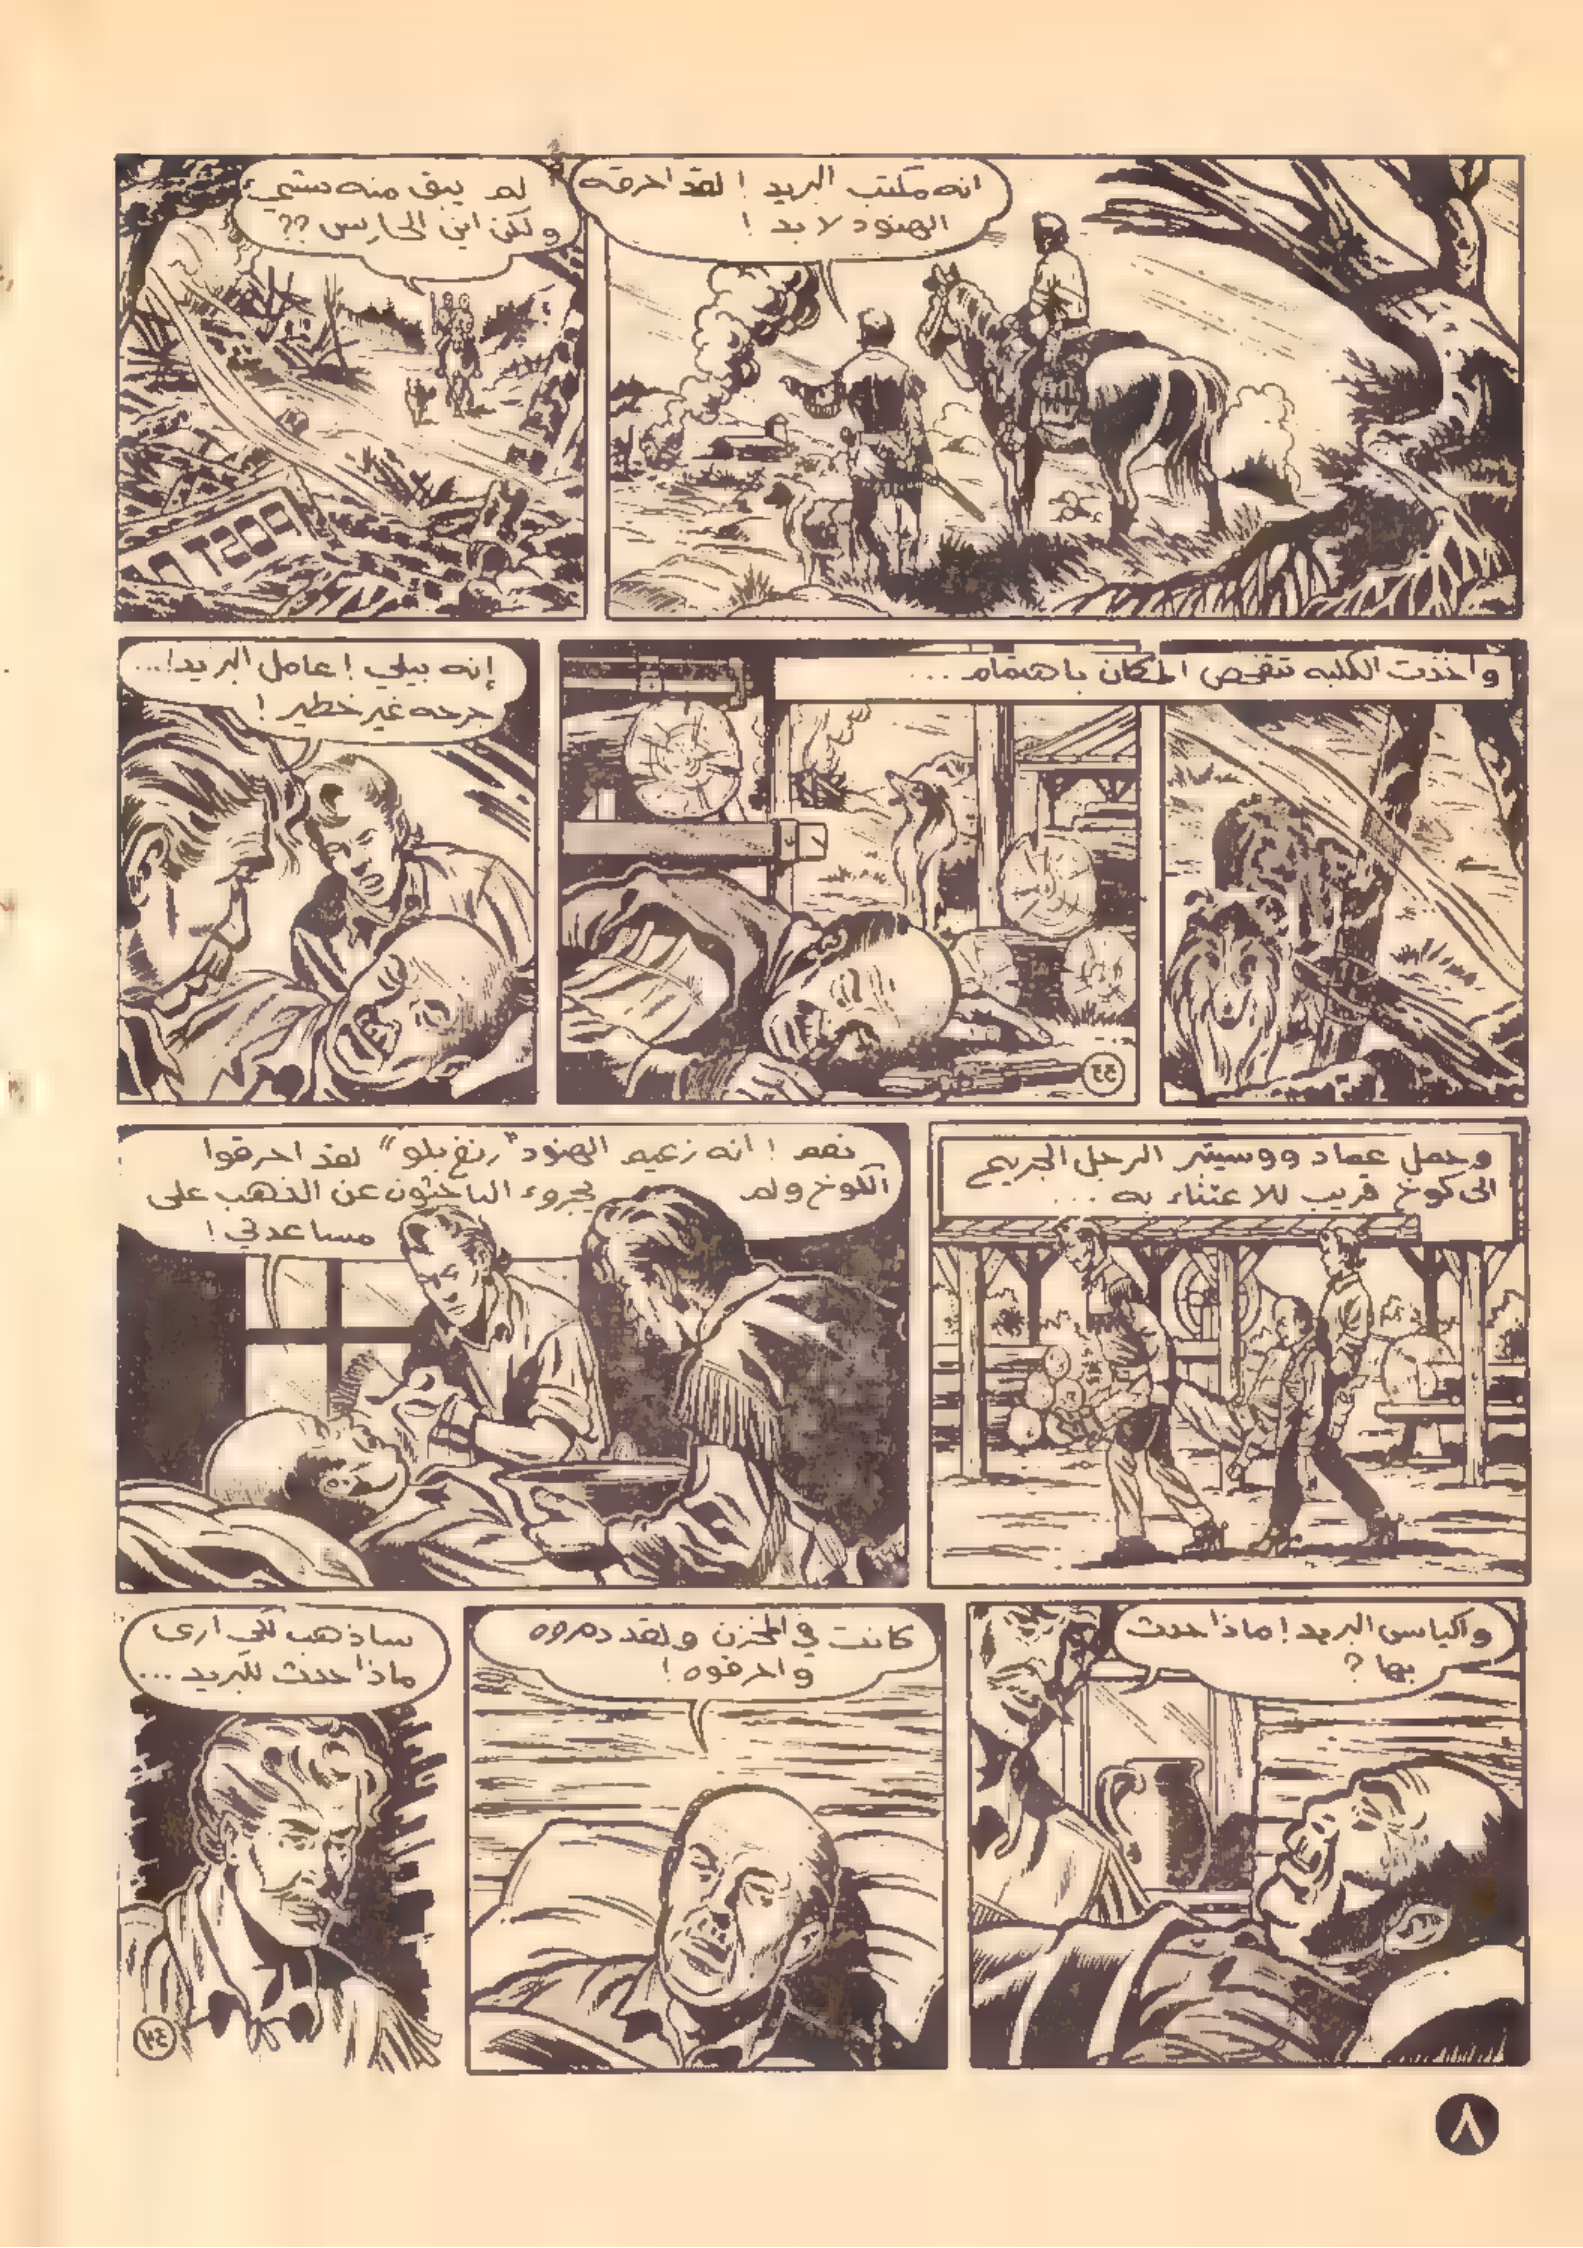 انه مكتب البريد ! لقد احرقه
الهنود لا بد !
لم يبق منه شيء
ولكن اين الحارس ؟؟
POST
واخذت الكلبه تتفحص المكان باهتمام ...
33
إنه بيلي ! عامل البريد! ...
جرحه غير خطير !
وحمل عماد ووسيتر الرجل الجريح
الى كوخ قريب للاعتناء به ...
نعم ! انه زعيم الهنود "رنغ بلو" لقد احرقوا
الكوخ ولم يجروء الباحثون عن الذهب على
مساعدتي !
واكياس البريد ! ماذا حدث
بها ؟
كانت في المخزن ولقد دمروه
واحرقوه !
ساذهب لكي ارى
ماذا حدث للبريد ...
34
٨